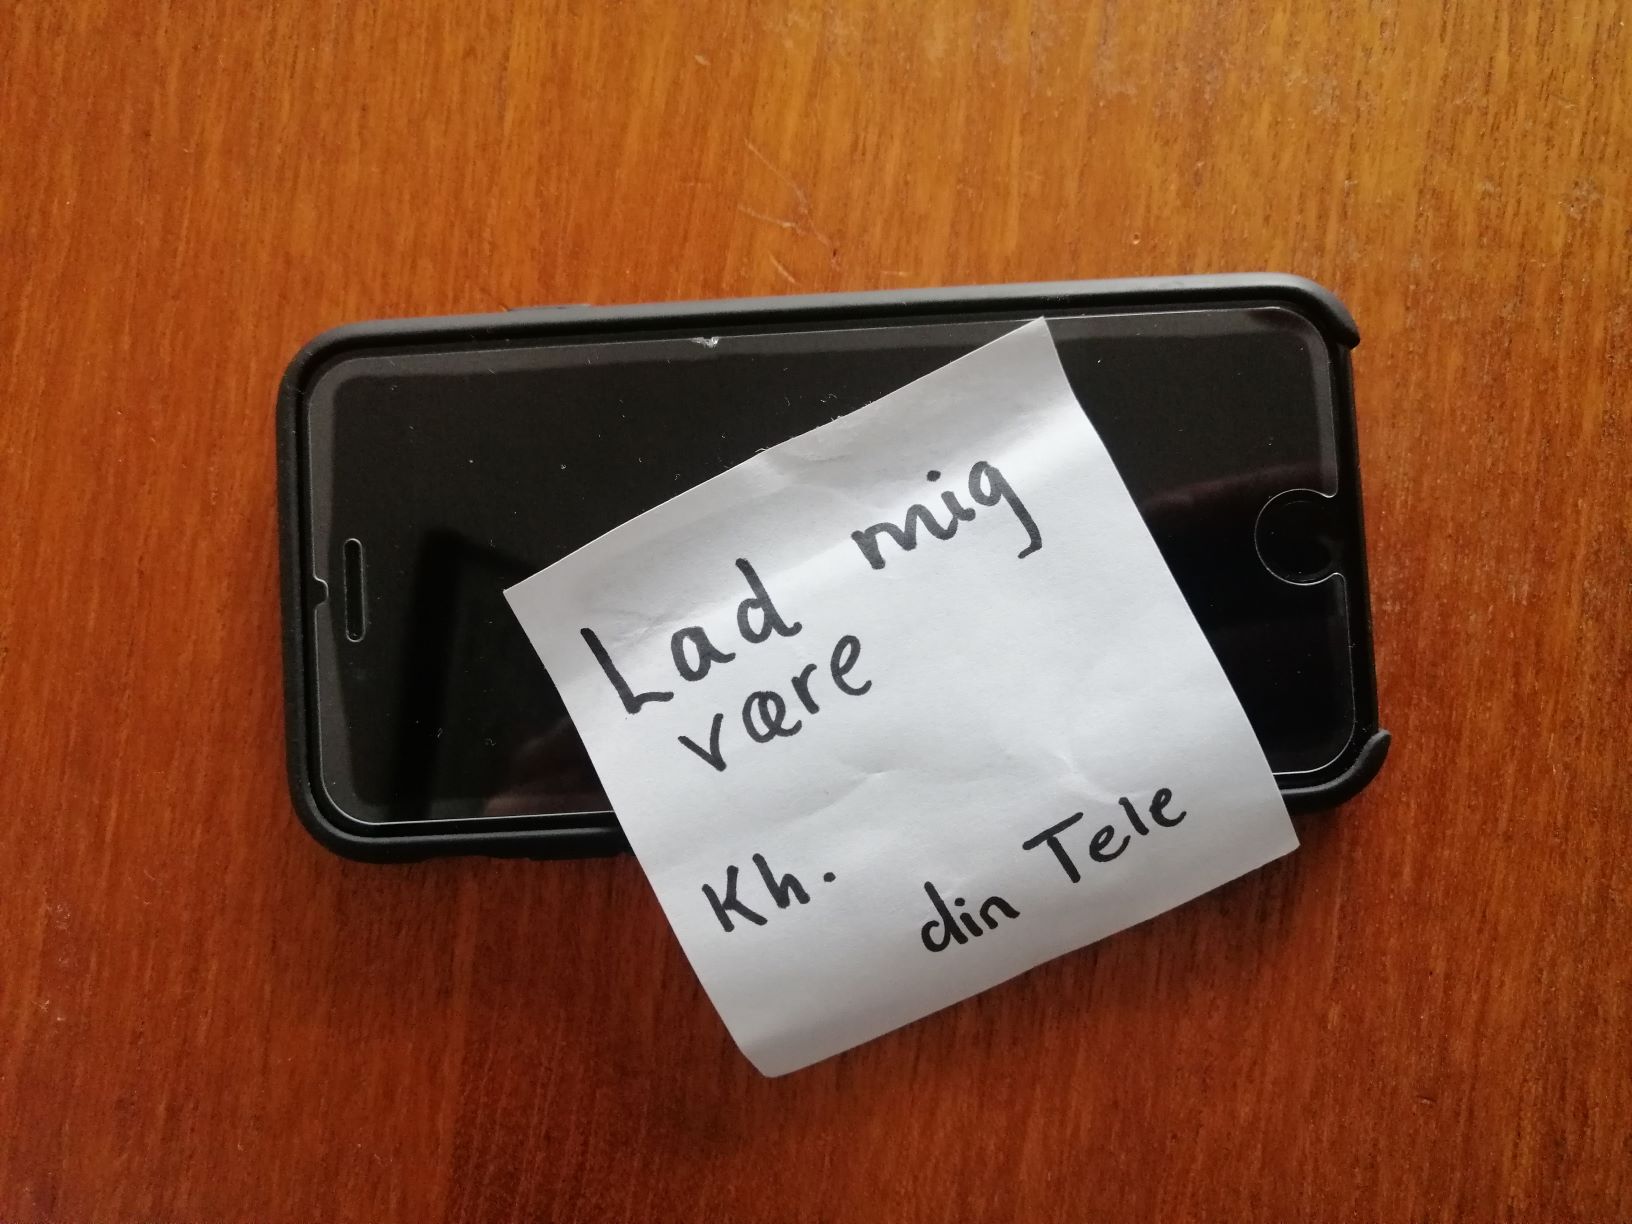 Lad mig
være
Kh.
din Tele